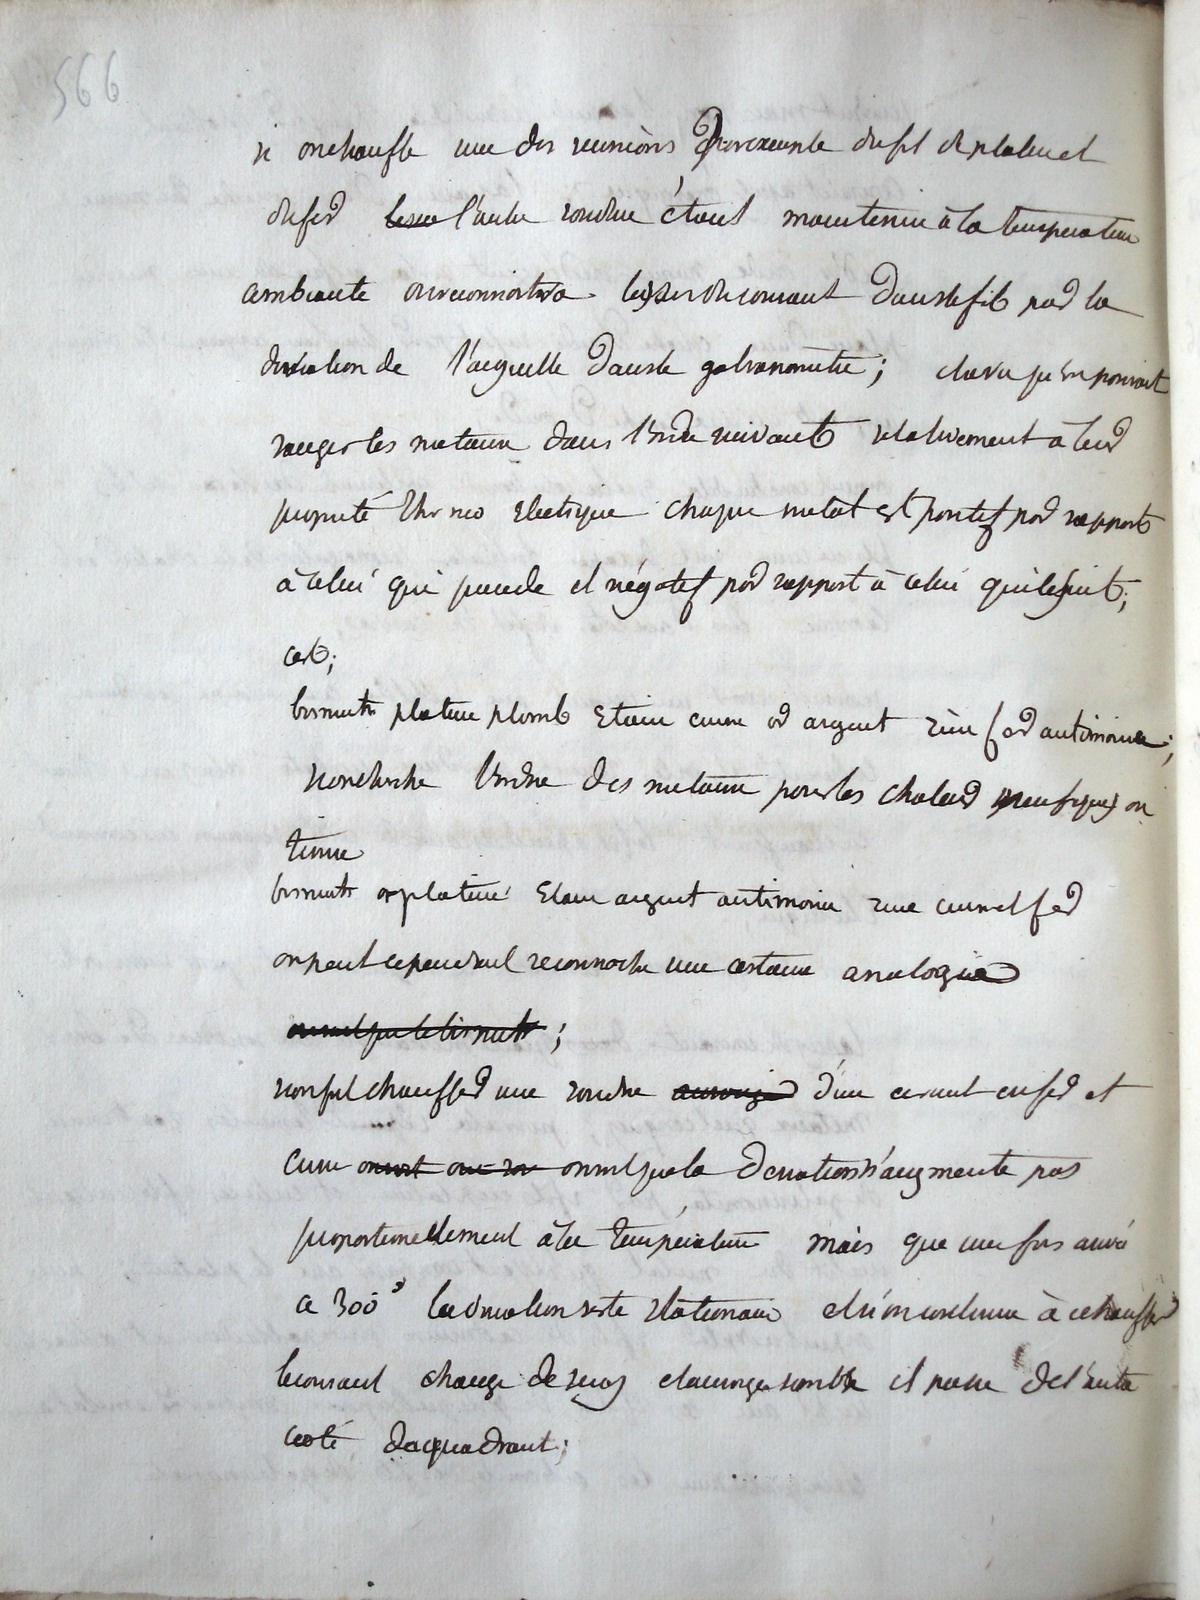 566
si on chauffe une des reunions par exemple du fil de platine et
du fer l'autre soudure étant maintenue à la temperature
ambiante on reconnoitra le sens du courant dans le fil par la
deviation de l'aeguille dans le galvanometre; on pouvait
ranger les metaux dans l'ordre suivant relativement a leur
propriété thermo electrique chaque metal est positif par rapport
à celui qui precede et négatif par rapport à celui qui le suit;
cest;
bismuth platine plomb etain cuivre or argent zinc fer antimoine;
si on cherche l'ordre des metaux pour les chaleur specifiques on
trouve
bismuth or platine etain argent antimoine zinc cuivre et fer
on peut cependant reconnoitre une certaine analogie
on voit que le bismuth ;
si on fait chauffer une soudure d'un circuit en fer et
cuivre on voit que la deviation n'augmente pas
proportionellement à la température mais que une fois arrivé
a 300° la deviation reste stationaire et si on continue à echauffer
le courant change de sens et il passe de l'autre
coté du quadrant;